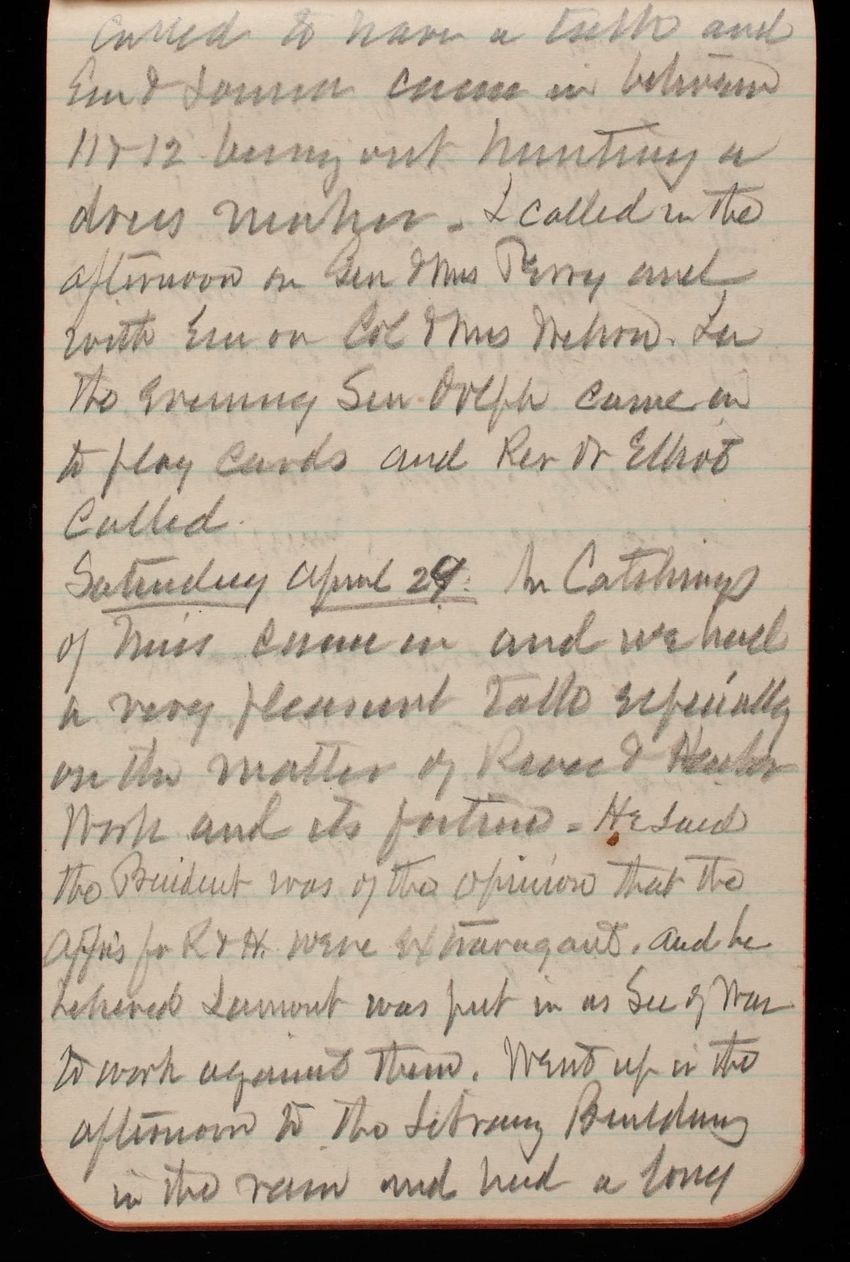 called to have a talk and
Em & Louisa came in between
11 & 12 being out hunting a
dress maker - I called in the
afternoon on Gen & Mrs Perry and
with Em on Col & Mrs Nelson. In
the evening Sen Dolph came in
to play cards and Rev Dr Elliot
called.
Saturday April 29. Mr Catchings
of Miss came in and we had
a very pleasant talk especially
on the matter of River & Harbor
Work and its future - He said
the President was of the opinion that the
Apprs for R & H. were extravagant. and he
believed Lamont was put in as Sec of War
to work against them. Went up in the
afternoon to the Library Building
in the rain and had a long